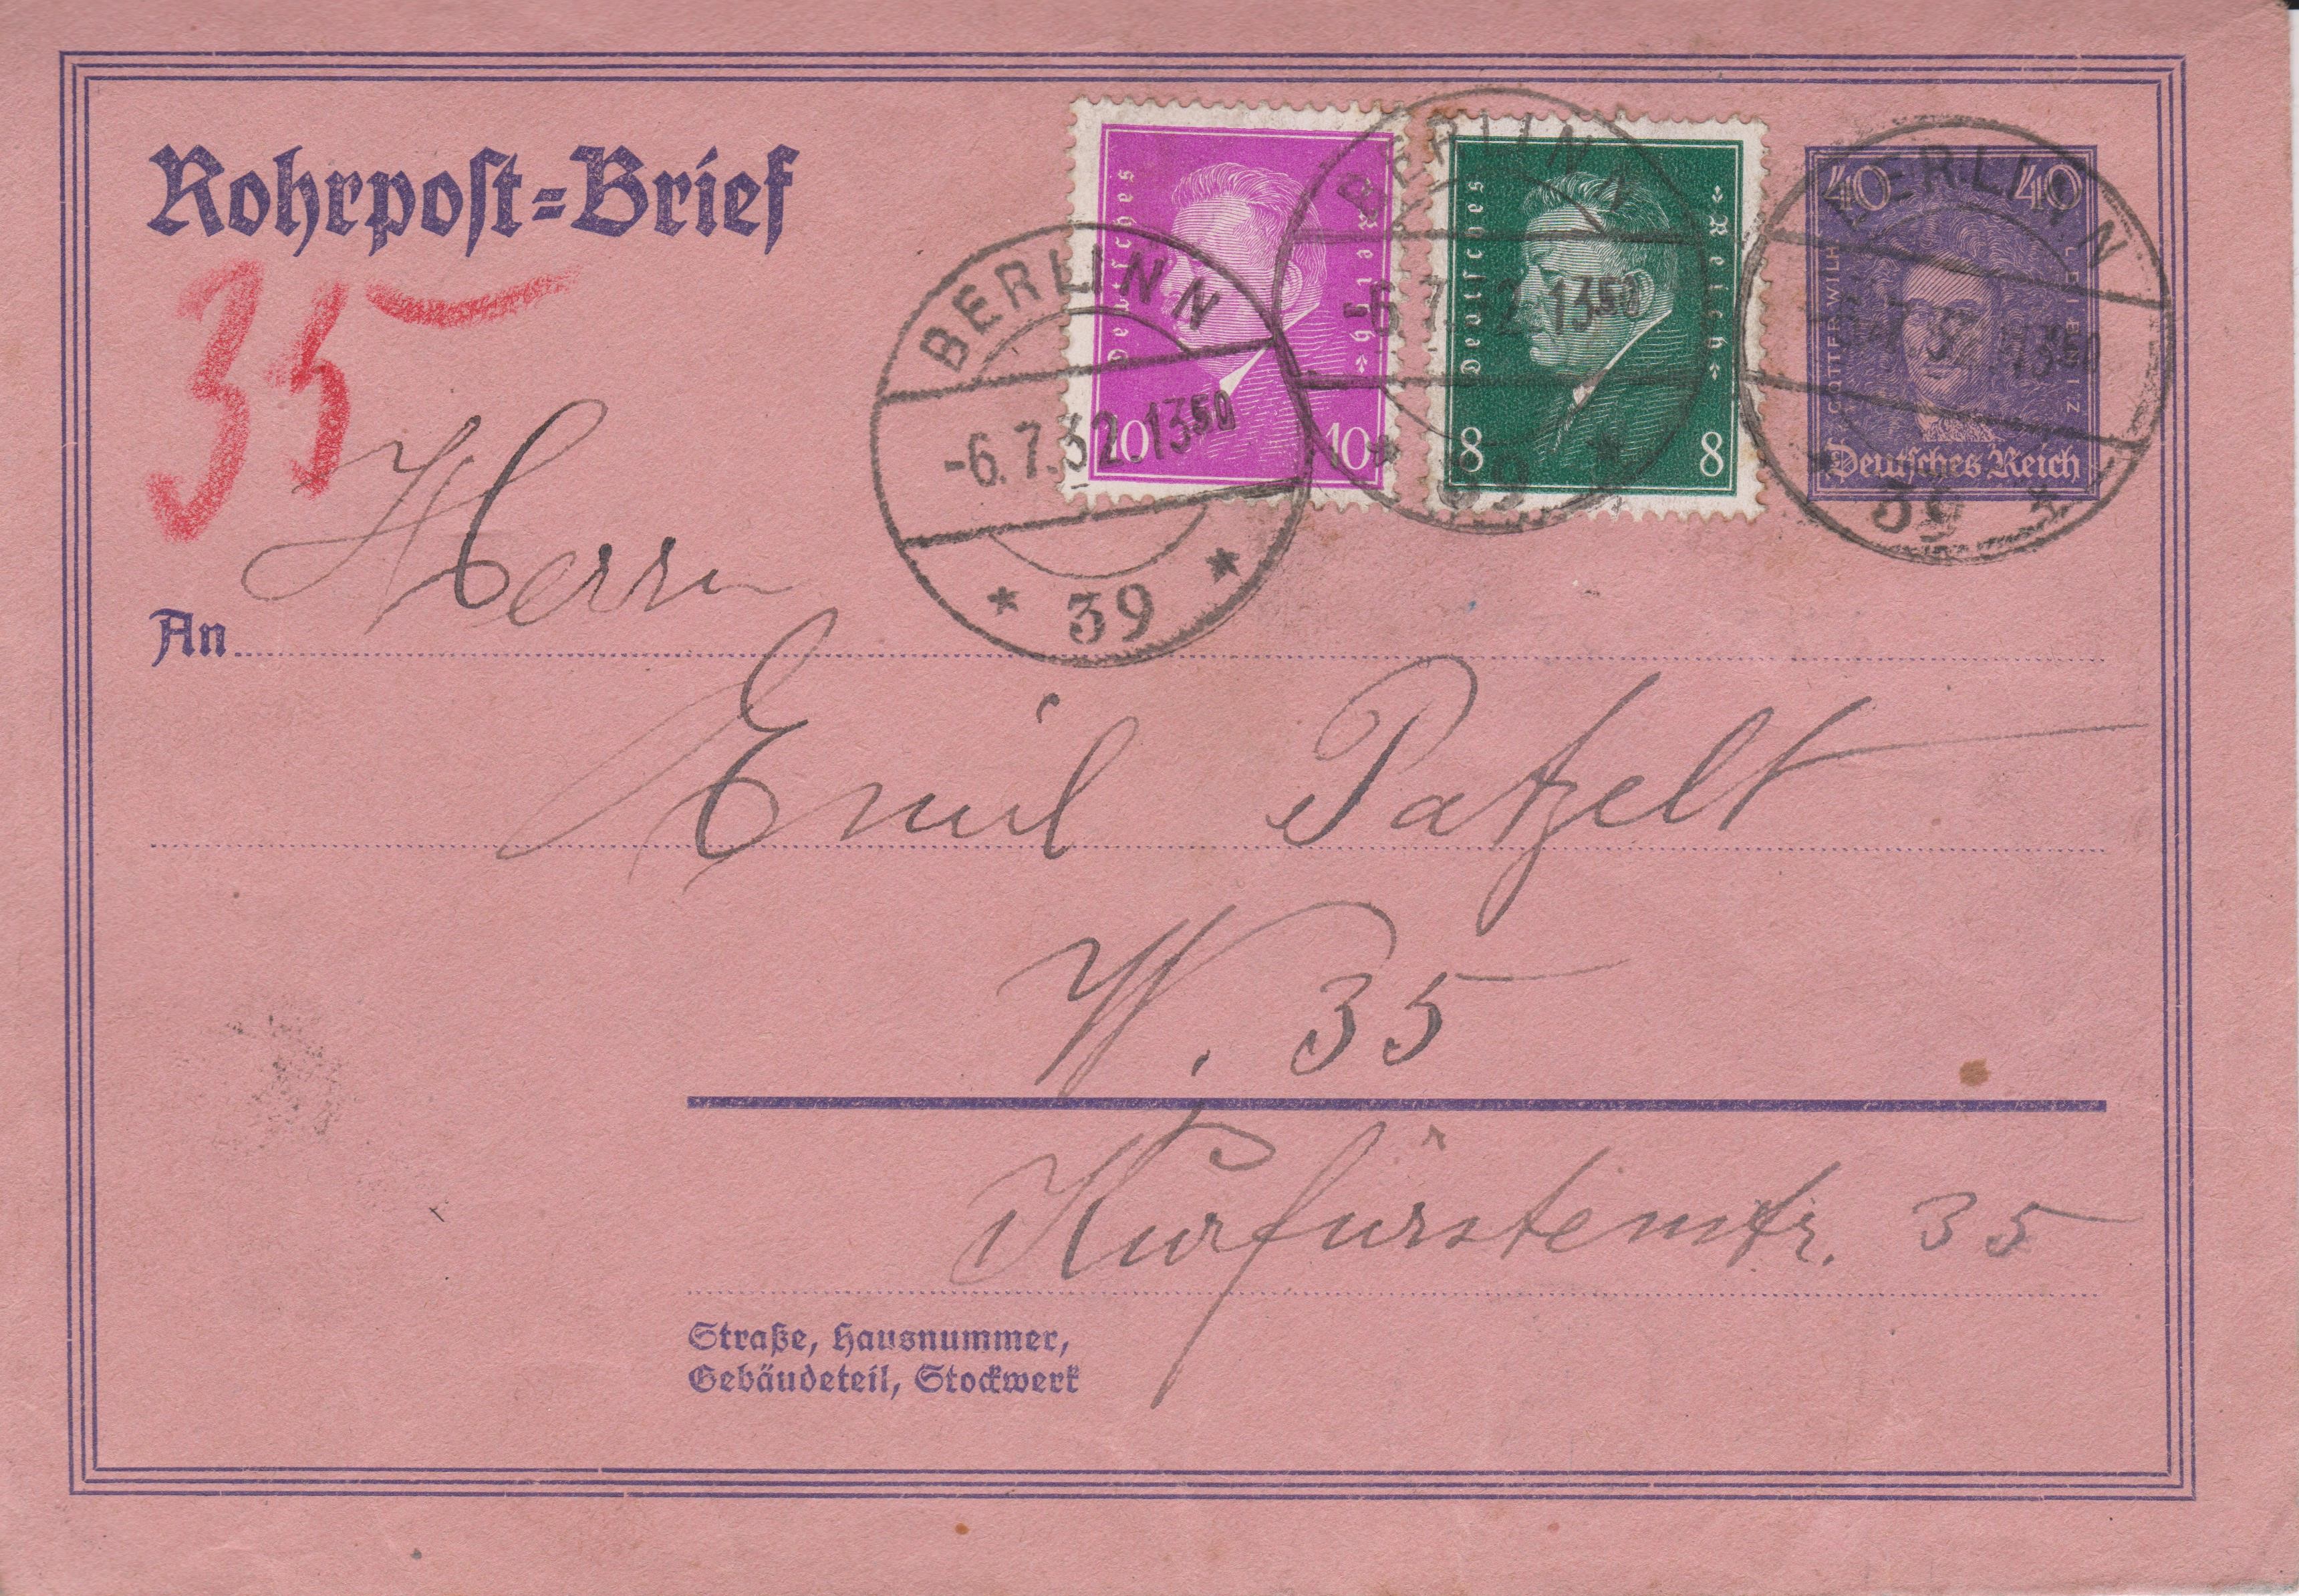 Rohrpost-Brief
35
Deutsches Reich
10 10
Deutsches Reich
8 8
40 40
GOTTFR. WILH. LEIBNITZ
Deutsches Reich
BERLIN N
-6.7.32.13 50
* 39 *
BERLIN N
-6.7.32.13 50
* 39 *
BERLIN N
-6.7.32.13 50
* 39 *
Herrn
An
Emil Patzelt
W. 35
Kurfürstenstr. 35
Straße, Hausnummer,
Gebäudeteil, Stockwerk